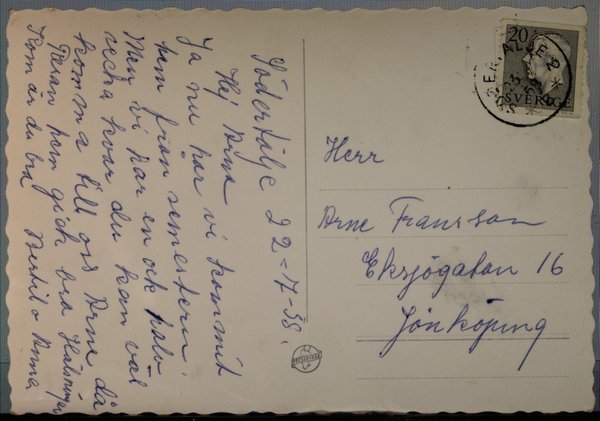 Södertälje 22-7-58.
Hej Arne
Ja nu har vi kommit
hem från semestern.
Men vi har en och halv
vecka kvar du kan väl
komma till oss Arne då
Resan hem gick bra Hälsningar
Kom är du bra Bertil o Anna
20
SVERIGE
Herr
Arne Fransson
Eksjögatan 16
Jönköping